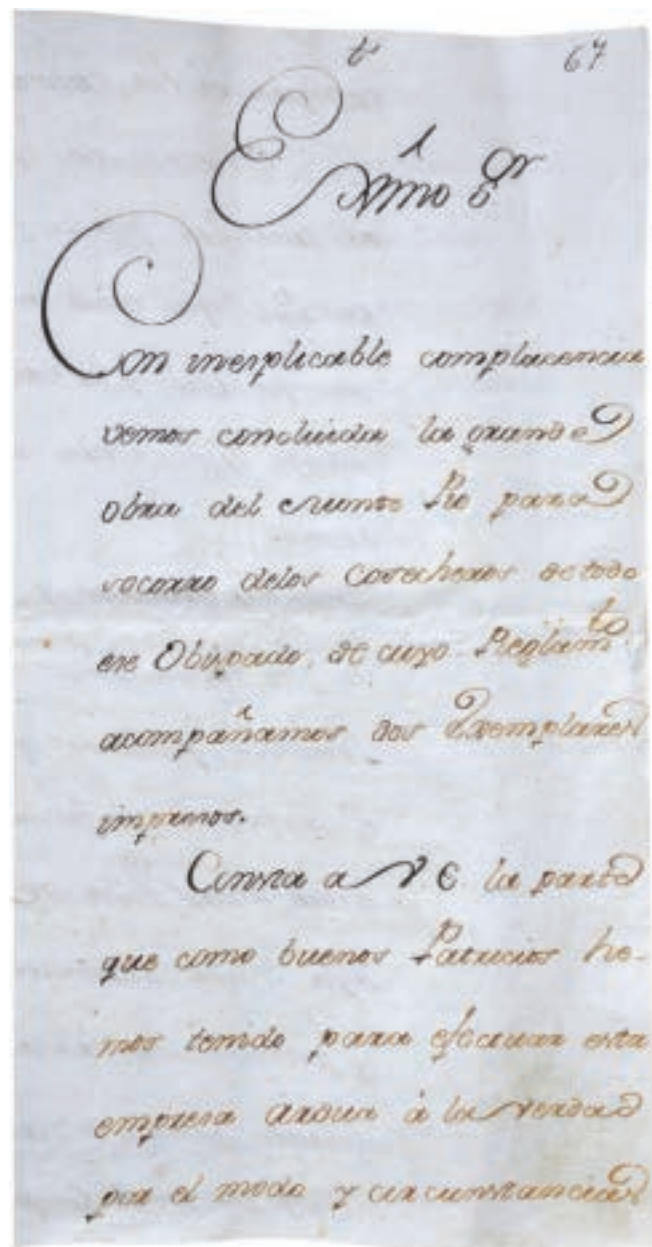 t° 67
Exmo Sor
Con inexplicable complacencia
vemos concluida la grande
obra del Monte Pio para
socorro delos Cosecheros de todo
ese Obispado, de cuyo Reglamto
acompañamos dos Exemplares
impresos.
Consta a V. E. la parte
que como buenos Patricios he-
mos tenido para efectuar esta
empresa ardua à la verdad
por el modo y circunstancias